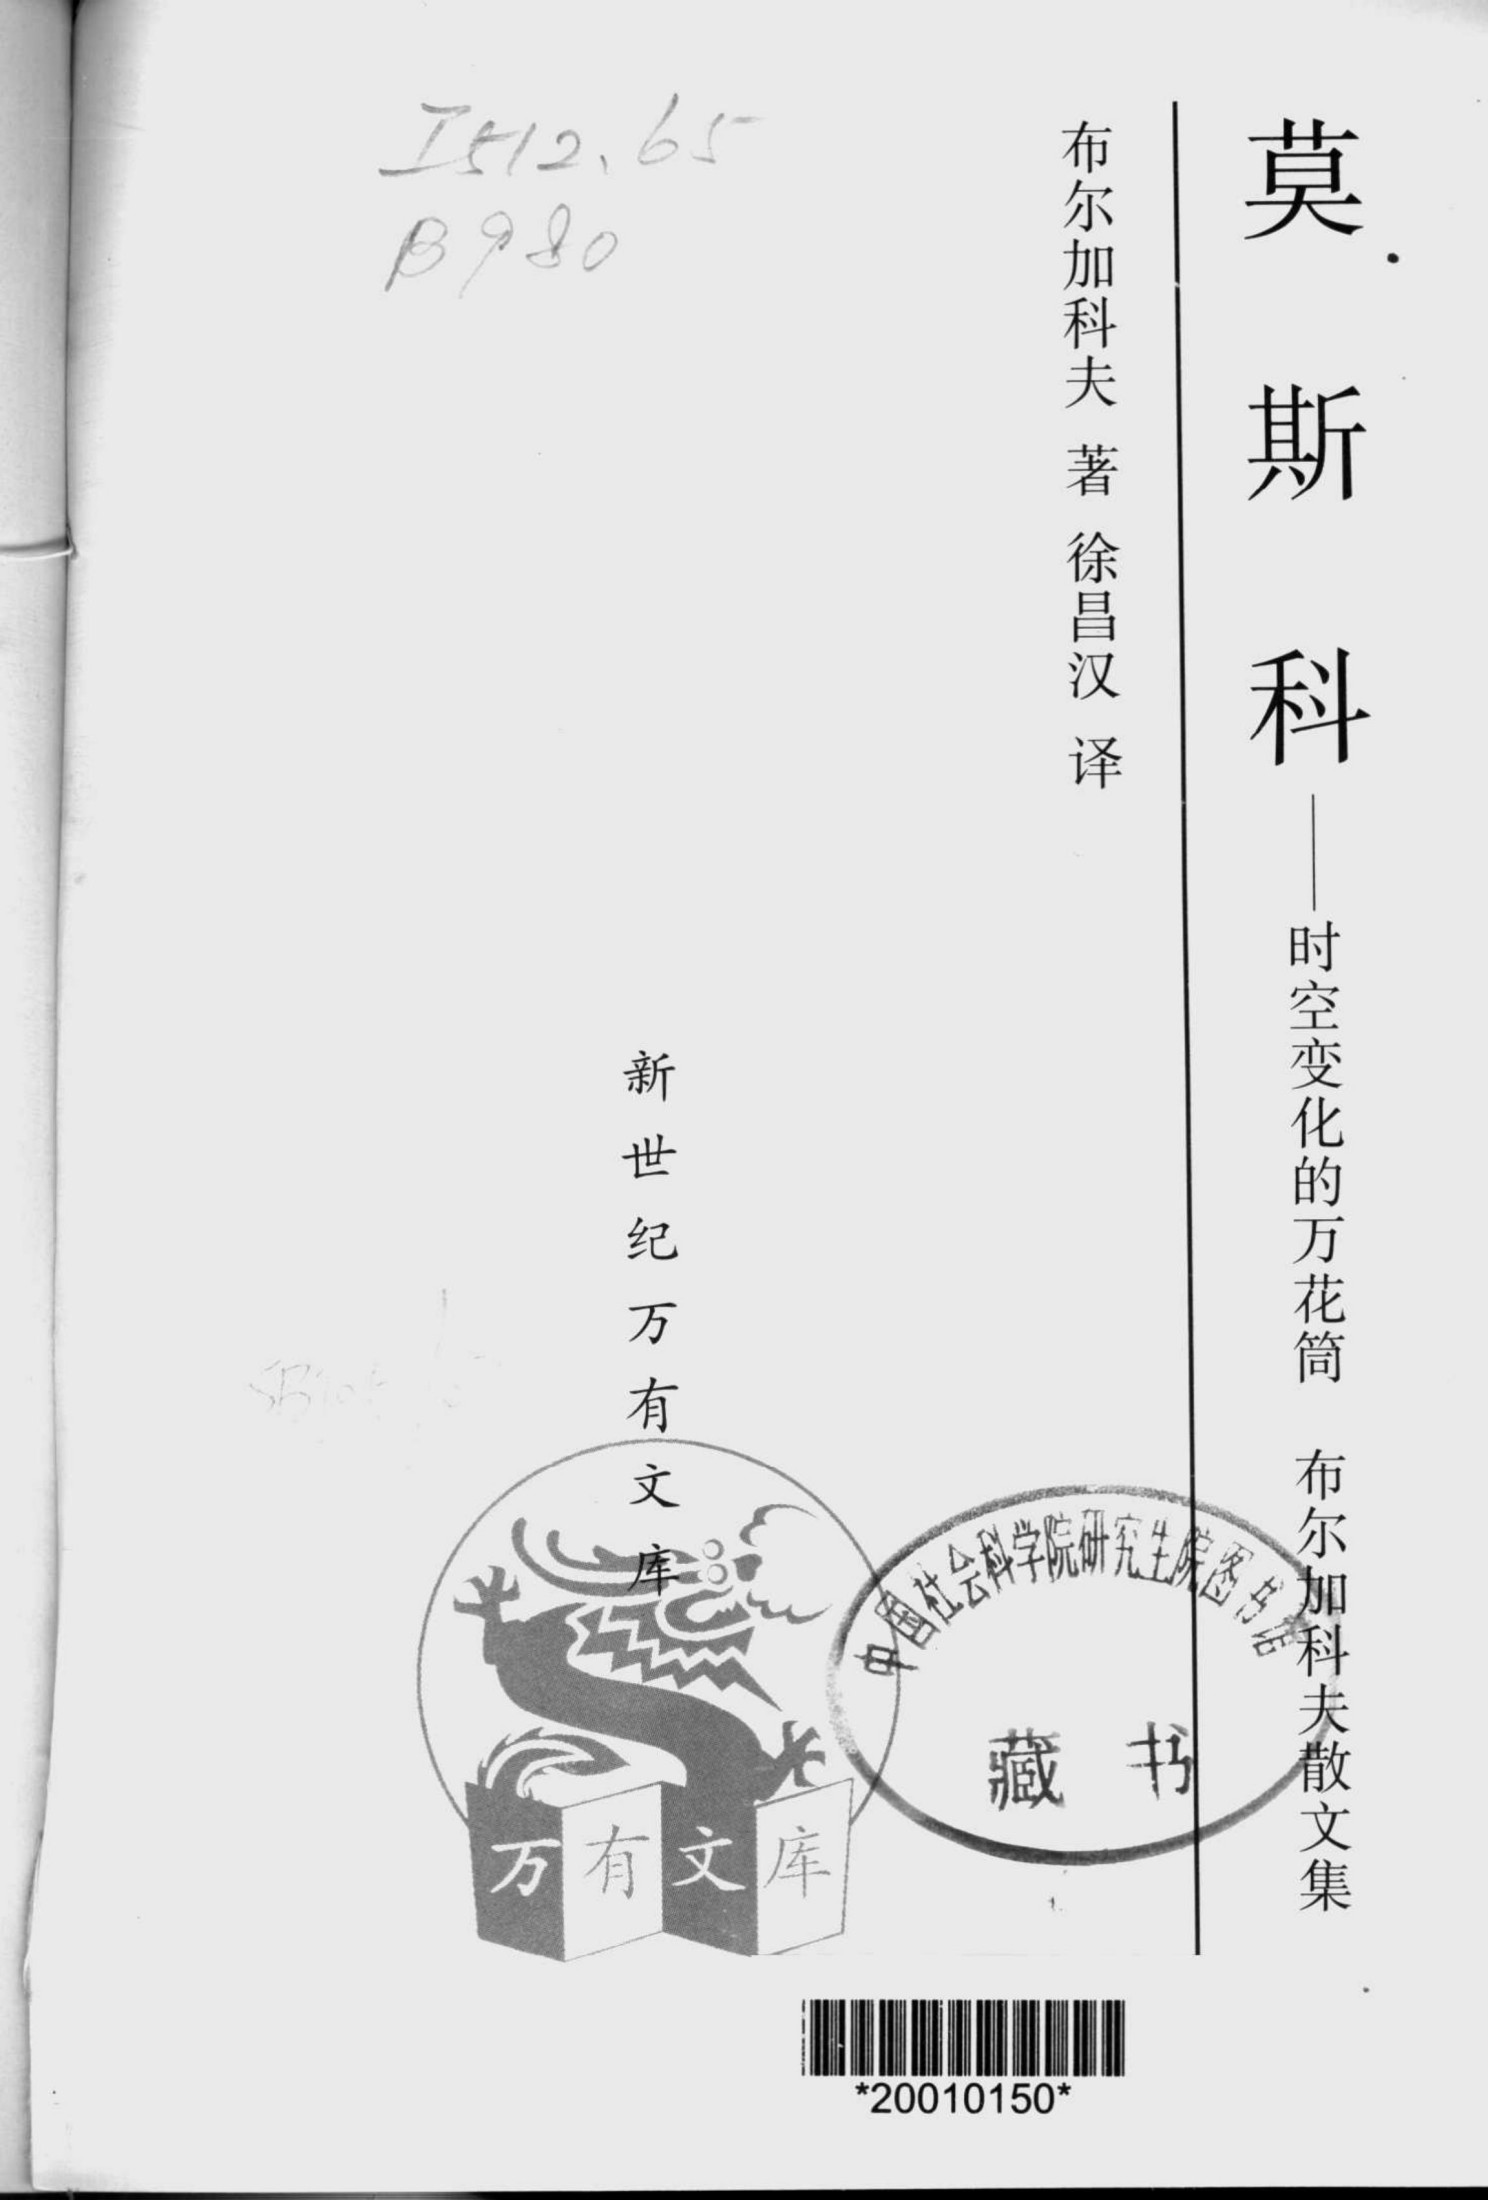 莫斯科——时空变化的万花筒 布尔加科夫散文集
布尔加科夫 著 徐昌汉 译
I512.65
B980
新世纪万有文库
万有文库
中国社会科学院研究生院图书馆
藏书
*20010150*